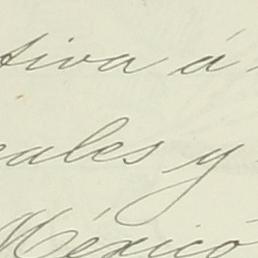 tiva á
eales y
México